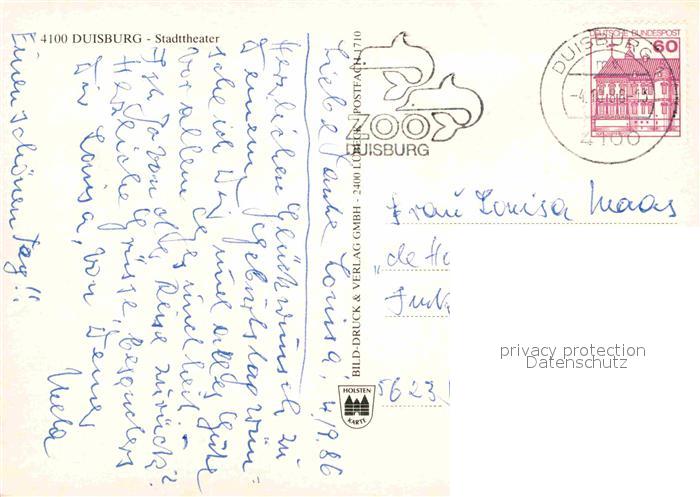 4100 DUISBURG - Stadttheater
Liebe Tante Louisa, 4/9. 86
Herzlichen Glückwunsch zu
Deinem Geburtstag wün
sche ich Dir und alles Gute
vor allem Gesundheit
von der Reise zurück?
Herzliche Grüsse, besonders
Dir Louisa, von Deine
Meta
Einen schönen Tag!!
BILD-DRUCK & VERLAG GMBH - 2400 LÜBECK - POSTFACH 1710
HOLSTEN
KARTE
ZOO
DUISBURG
DUISBURG
4100
DEUTSCHE BUNDESPOST
60
Frau Louisa Maas
"de H
5623
privacy protection
Datenschutz